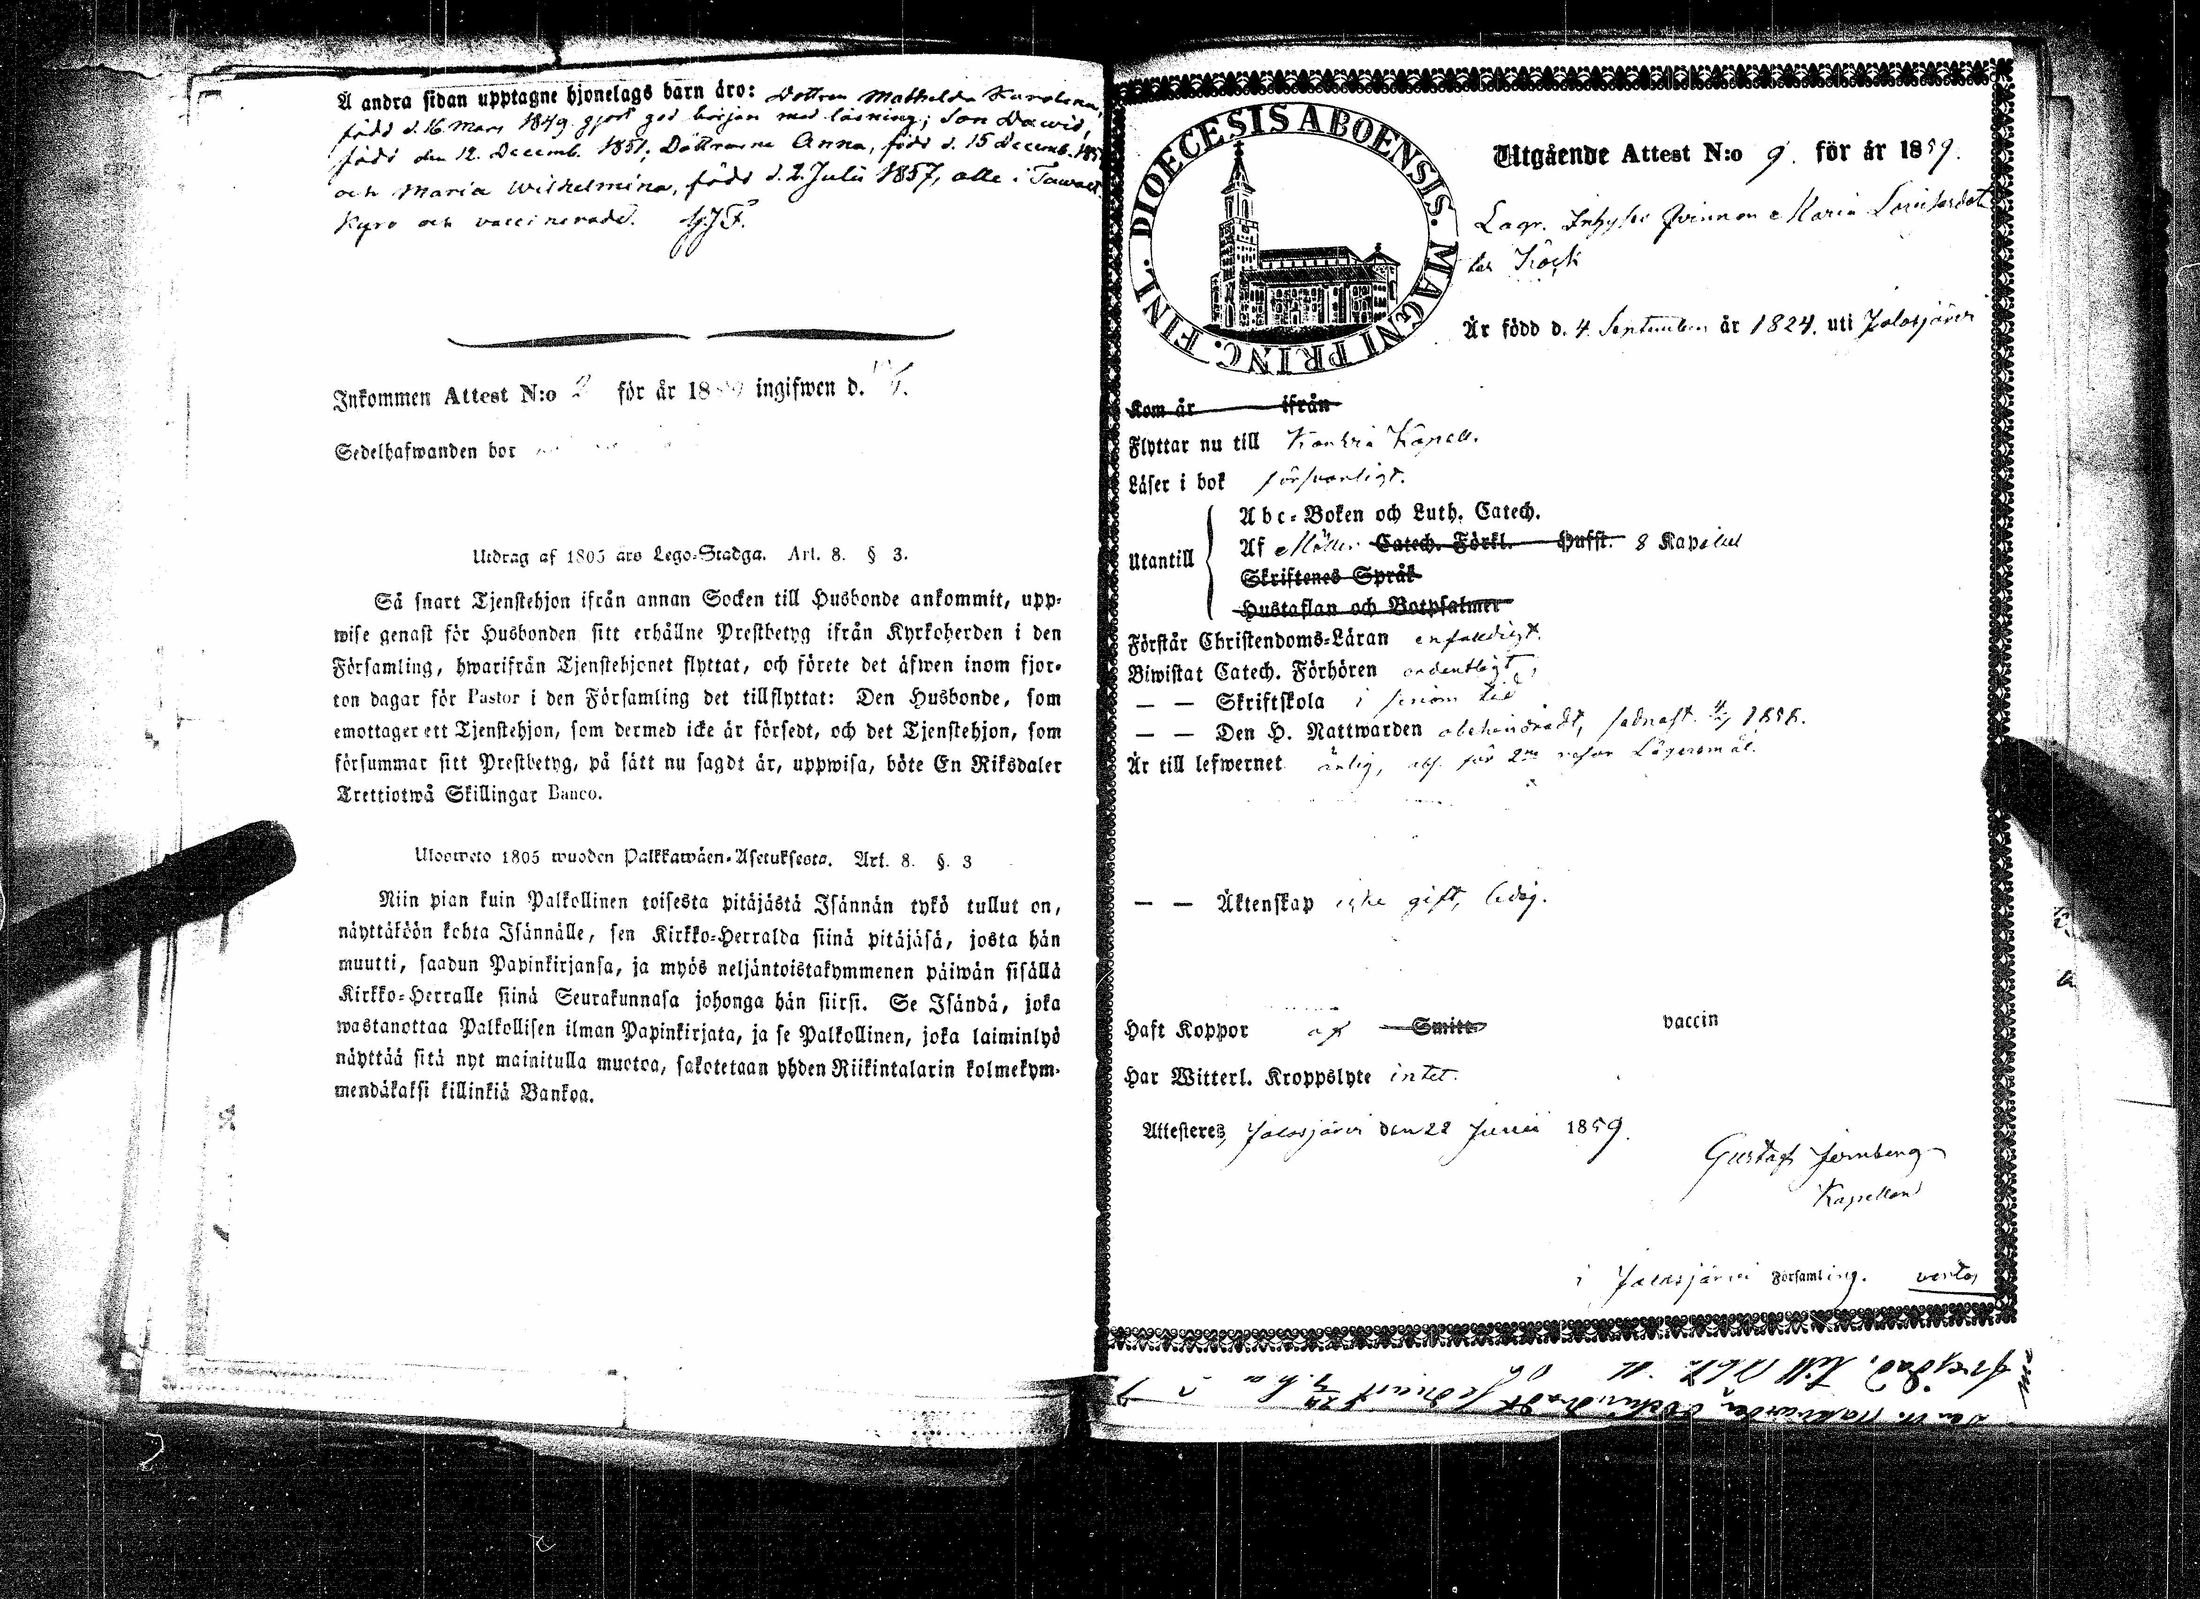 Å andra sidan upptagne hjonelags barn äro: Dottren Mathelda Karolina,
född d. 16 Mars 1849 gjort god början med läsning; Son Dawid,
född den 12. Decemb. 1851; Döttrarne Anna, född d. 15 Decemb. 185
och Maria Wilhelmina, född d. 2. Julii 1857, alle i Tawast
Kyro och vaccinerade.
Inkommen Attest N:o 2 för år 18 ingifwen d.
Sedelhafwanden bor
Utdrag af 1805 års Lego-Stadga. Art. 8. § 3.
Så snart Tjenstehjon ifrån annan Socken till Husbonde ankommit, upp-
wise genast för Husbonden sitt erhållne Prestbetyg ifrån Kyrkoherden i den
Församling, hwarifrån Tjenstehjonet flyttat, och förete det äfwen inom fjor-
ton dagar för Pastor i den Församling det tillflyttat: Den Husbonde, som
emottager ett Tjenstehjon, som dermed icke är försedt, och det Tjenstehjon, som
försummar sitt Prestbetyg, på sätt nu sagdt är, uppwisa, böte En Riksdaler
Trettiotwå Skillingar Banco.
Ulosweto 1805 wuoden Palkkawäen-Asetuksesta. Art. 8. §. 3
Niin pian kuin Palkollinen toisesta pitäjästä Isännän tykö tullut on,
näyttäköön kohta Isännälle, sen Kirkko-Herralda siinä pitäjäsä, josta hän
muutti, saadun Papinkirjansa, ja myös neljäntoistakymmenen päiwän sisällä
Kirkko-Herralle siinä Seurakunnasa johonga hän siirsi. Se Isändä, joka
wastanottaa Palkollisen ilman Papinkirjata, ja se Palkollinen, joka laiminlyö
näyttää sitä nyt mainitulla muotoa, sakotetaan yhden Riikintalarin kolmekym-
mendäkaksi killinkiä Bankoa.
DIOECESIS ABOENSIS. MAGNI PRINC. FINL.
Utgående Attest N:o 9. för år 1859.
Lägr. Inhyses Qvinnan Maria
Är född d. 4. September år 1824. uti Jalasjärvi
Kom år ifrån
Flyttar nu till Kapell.
Läser i bok försvarligt.
Abc-Boken och Luth. Catech.
Utantill Af Möllers Catech. Förkl. Hufst. 8 Kapitel
Skriftenes Språk
Hustaflan och Botpsalmer
Förstår Christendoms-Läran enfaldigt.
Biwistat Catech. Förhören ordentligt,
— — Skriftskola i sinom tid
— — Den H. Nattwarden obehindradt, sednast 1858.
Är till lefwernet ärlig, för 2ne resor Lägersmål.
— — Äktenskap icke gift, ledig.
Haft Koppor af Smitt- vaccin
Har Witterl. Kroppslyte intet.
Attesteres, Jalasjärvi den 22 Junii 1859.
Gustaf Jernberg
Kapellan
i Jalasjärvi Församling. vertas